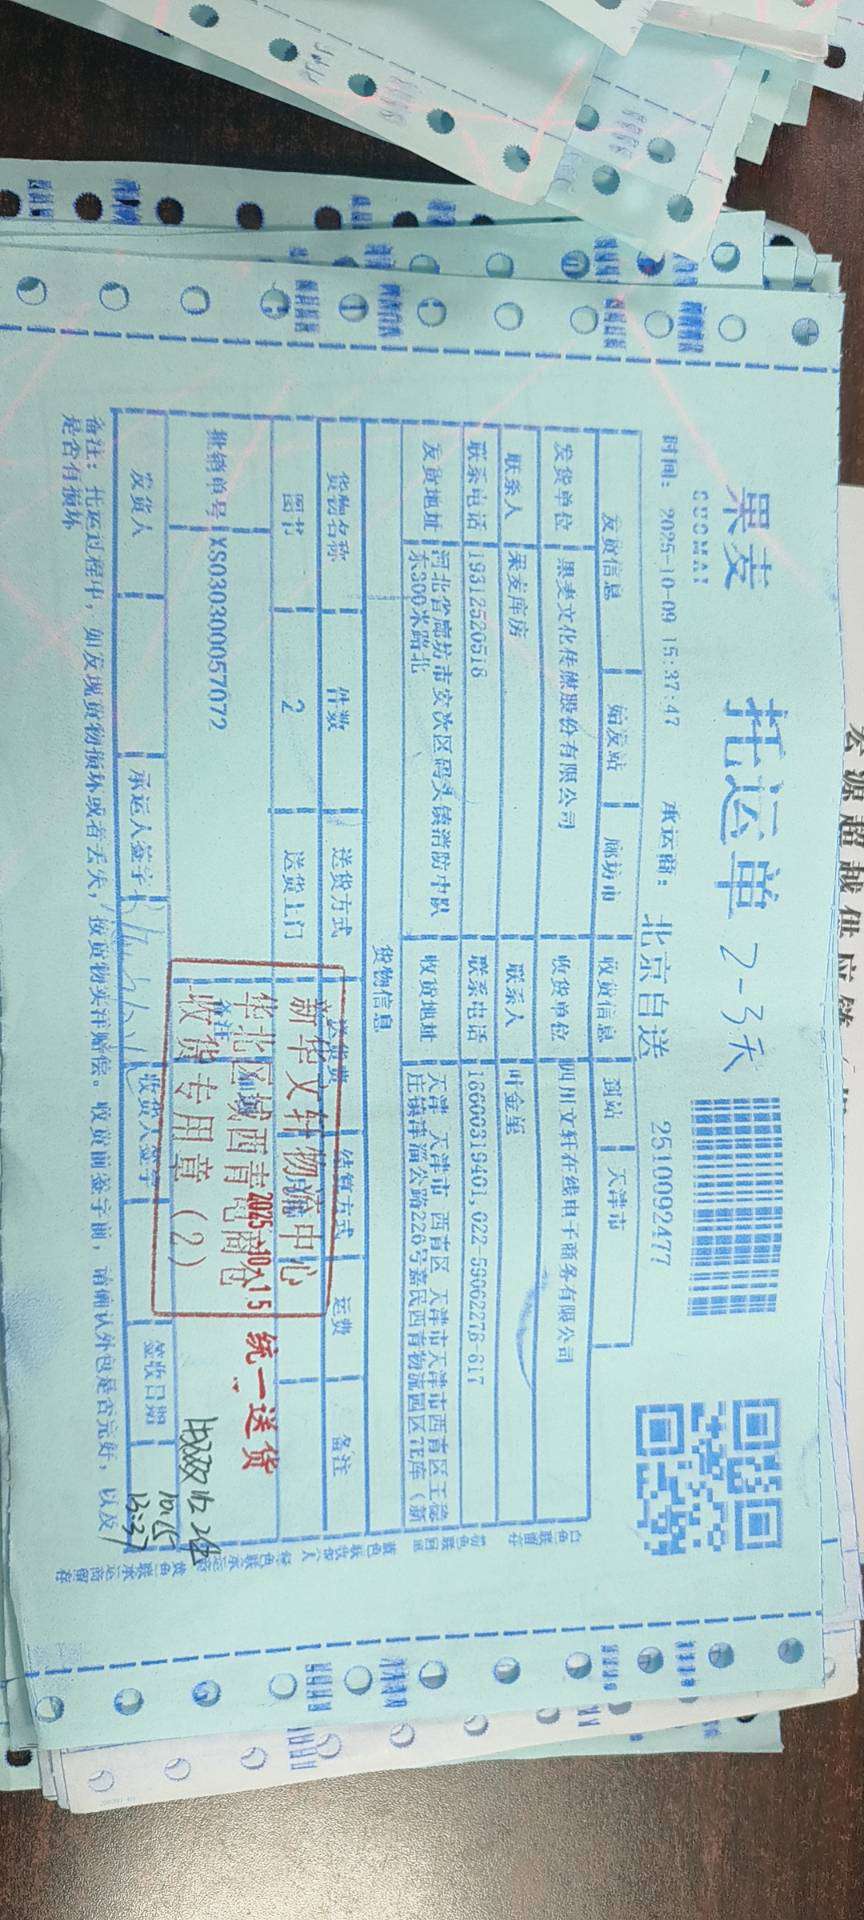 果麦
GUOMAI
托运单 2-3天
2510092477
时间: 2025-10-09 15:37:47 承运商: 北京自送
发货信息 始发站 廊坊市 收货信息 到站 天津市
发货单位 果麦文化传媒股份有限公司 收货单位 四川文轩在线电子商务有限公司
联系人 果麦库房 联系人 叶金玺
联系电话 19312520516 联系电话 18600319401,022-59062278-617
发货地址 河北省廊坊市安次区码头镇消防中队
东300米路北
收货地址 天津 天津市 西青区 天津市天津市西青区王稳
庄镇津淄公路226号嘉民西青物流园区7E库(新
货物信息
货物名称 件数 送货方式 送货费 结算方式 运费 备注
图书 2 送货上门
批销单号 XS030300057072 备注
新华文轩物流中心
华北区域西青电商仓
2025-10-15
收货专用章(2)
统一送货
发货人 承运人签字 收货人签字 签收日期
10.15
13:37
备注: 托运过程中, 如发现货物损坏或者丢失, 按货物实洋赔偿。收货前签字前, 请确认外包是否完好, 以及
是否有损坏
白色联留存
宏源超越供应链